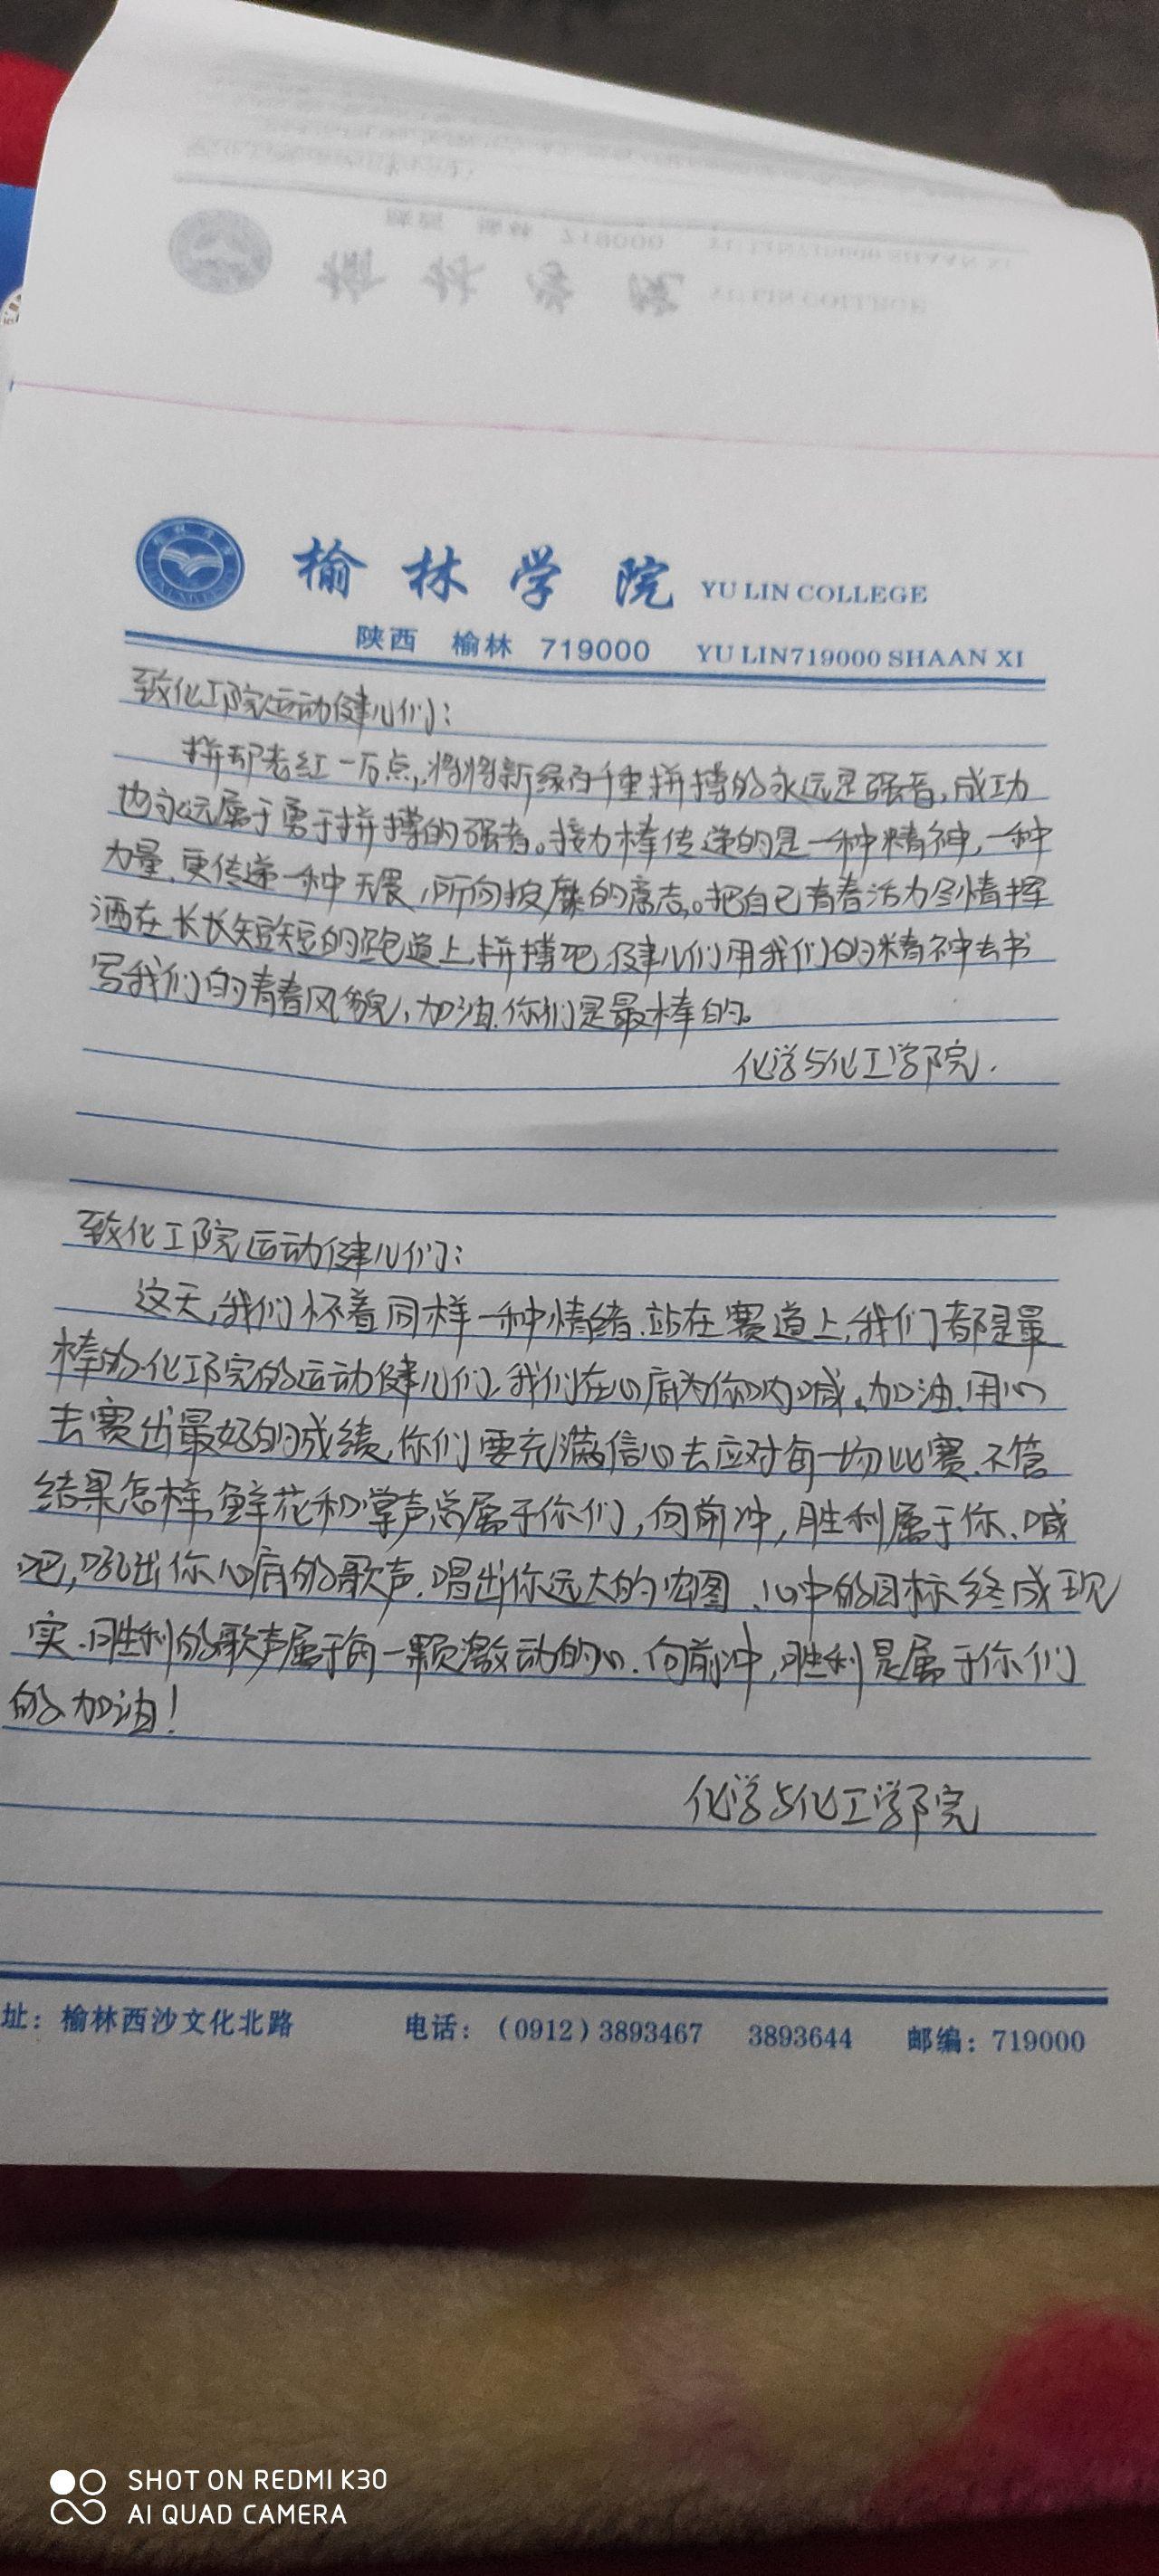 榆林学院 YU LIN COLLEGE
陕西 榆林 719000 YU LIN719000 SHAAN XI
致化工院运动健儿们:
拼却老红一万点,将将新绿百千重拼搏的永远是强者,成功
也永远属于勇于拼搏的强者。接力棒传递的是一种精神,一种
力量,更传递一种无畏,所向披靡的意志。把自己青春活力尽情挥
洒在长长短短的跑道上,拼搏吧,健儿们用我们的精神去书
写我们的青春风貌,加油,你们是最棒的。
化学与化工学院.
致化工院运动健儿们:
这天,我们怀着同样一种情绪,站在赛道上,我们都是最
棒的,化工院的运动健儿们,我们在心底为你呐喊,加油,用心
去赛出最好的成绩,你们要充满信心去应对每一场比赛,不管
结果怎样,鲜花和掌声总属于你们,向前冲,胜利属于你,喊
吧,吼出你心底的歌声,唱出你远大的宏图,心中的目标终成现
实,胜利的歌声属于每一颗激动的心,向前冲,胜利是属于你们
的,加油!
化学与化工学院
址: 榆林西沙文化北路 电话: (0912)3893467 3893644 邮编: 719000
SHOT ON REDMI K30
AI QUAD CAMERA